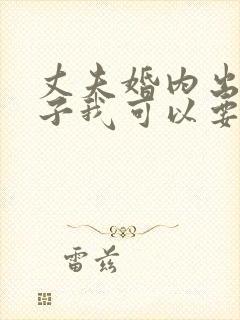 丈夫婚内出
子我可以要
雷兹